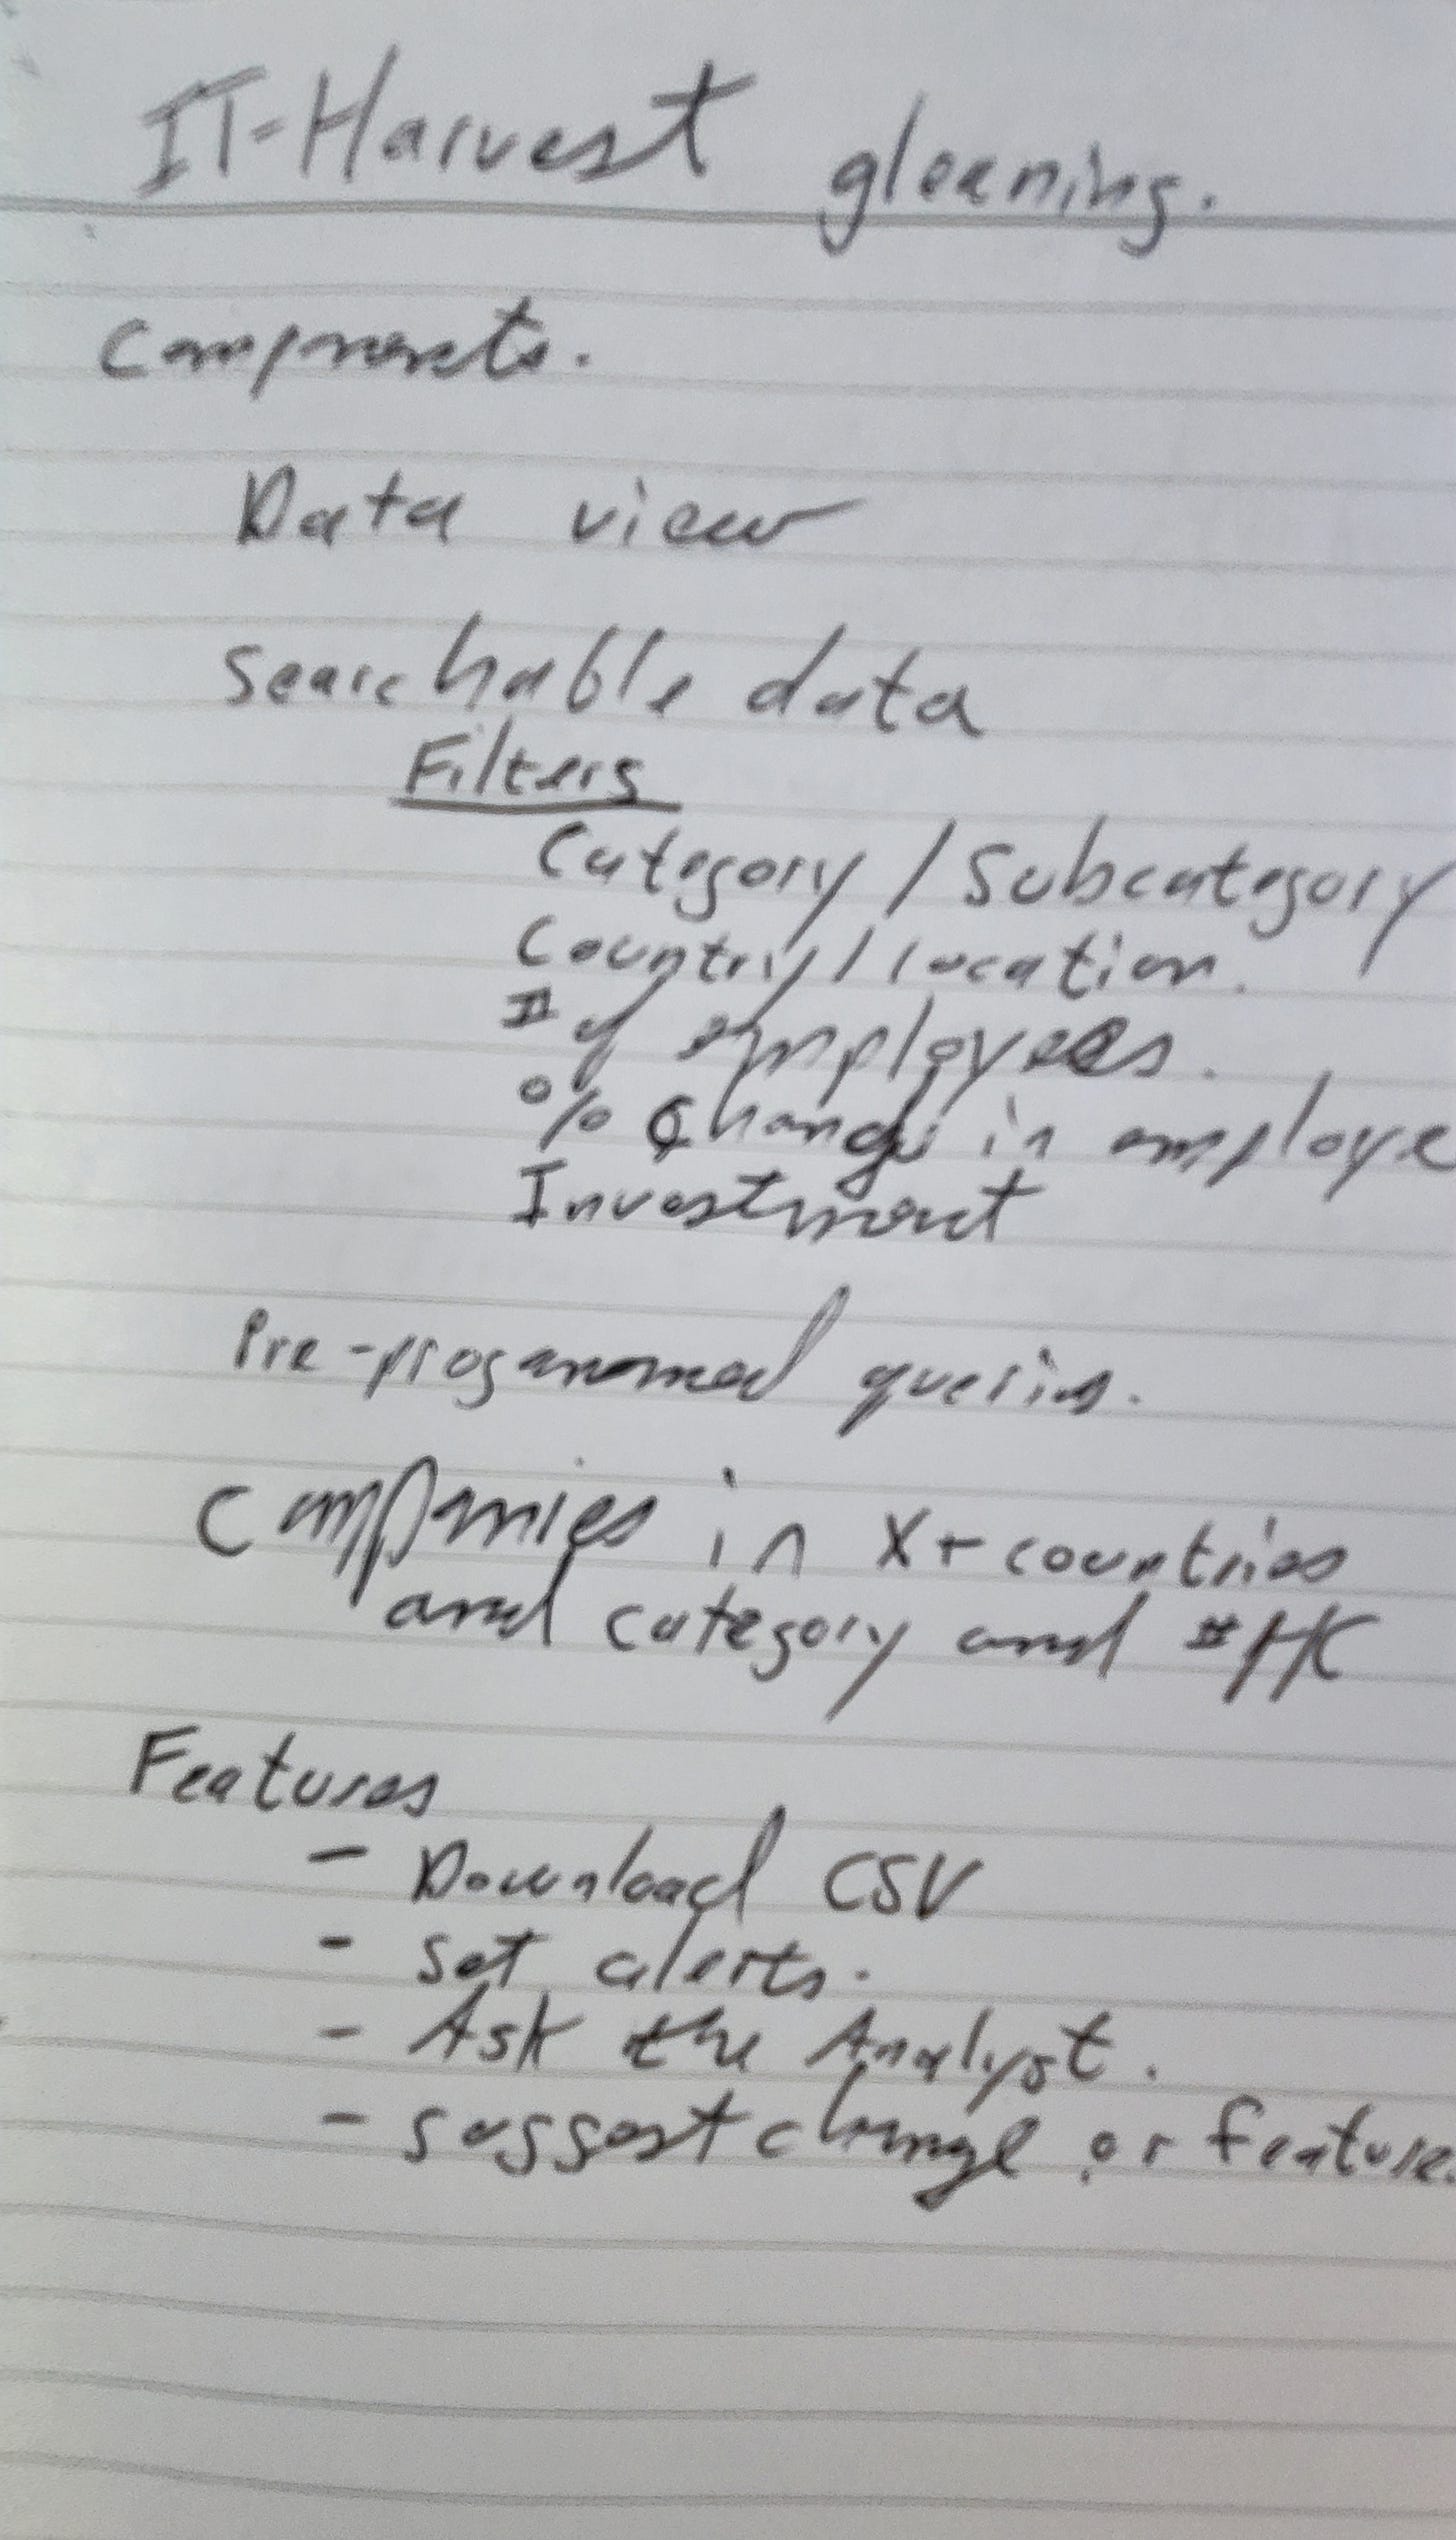 IT-Harvest gleaning.
Components.
Data view
Searchable data
Filters
Category / Subcategory
Country / location.
# of employees.
% Change in employe
Investment
Pre-programmed queries.
Companies in X + countries
and category and # HC
Features
- Download CSV
- set alerts.
- Ask the Analyst.
- suggest change or feature.